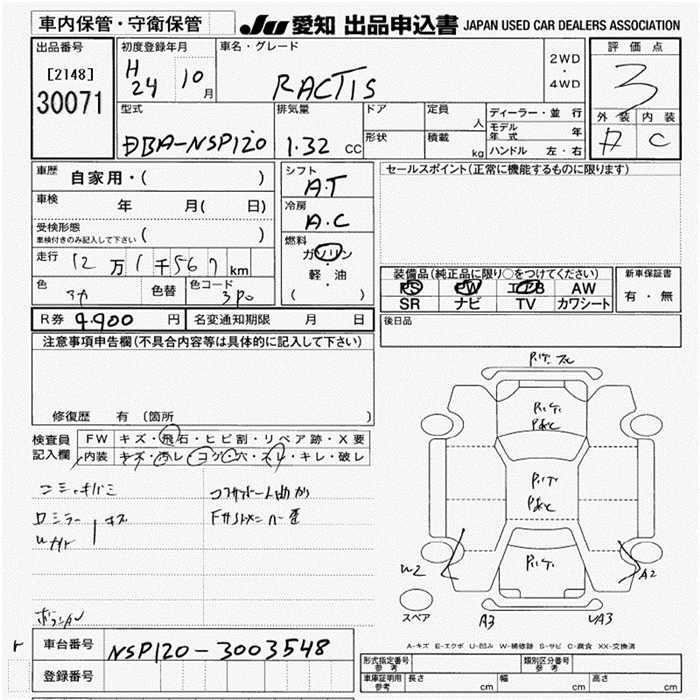 車内保管・守衛保管
JU 愛知 出品申込書 JAPAN USED CAR DEALERS ASSOCIATION
出品番号
[2148]
30071
初度登録年月
H
24 10月
車名・グレード
RACTIS
2WD
・
4WD
評価点
3
外装 内装
A C
型式
DBA-NSP120
排気量
1.32 CC
ドア
形状
定員 人
積載 kg
ディーラー・並行
モデル年式 年
ハンドル 左・右
車歴
自家用・( )
車検 年 月( 日)
受検形態
車検付きのみ記入して下さい ( )
走行 12万1千567km
色
色替
色コード
3P0
シフト
A.T
冷房
A.C
燃料
ガソリン
軽・油
・
( )
セールスポイント(正常に機能するものに限ります)
装備品(純正品に限り○をつけてください)
PS PW エアB AW
SR ナビ TV カワシート
新車保証書
有・無
R券 9.900 円 名変通知期限 月 日
後日品
注意事項申告欄(不具合内容等は具体的に記入して下さい)
修復歴 有 〔箇所 〕
検査員
記入欄
FW キズ・飛石・ヒビ割・リペア跡・X要
内装 キズ・汚レ・コゲ・穴・スレ・キレ・破レ
W2
A2
スペア
A3
A-キズ E-エクボ U-凹み W-補修跡 S-サビ C-腐食 XX-交換済
車台番号 NSP120-3003548
登録番号
形式指定番号
参考
類別区分番号
参考
車庫証明用
参考
長さ cm 幅 cm 高さ cm